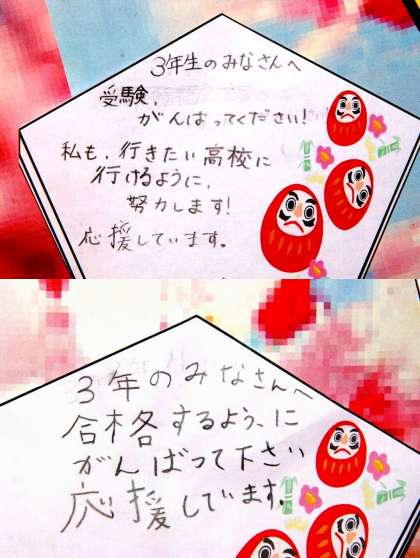 3年生のみなさんへ
受験、
がんばってください!
私も、行きたい高校に
行けるように、
努力します!
応援しています。
3年のみなさんへ
合格するように
がんばって下さい
応援しています。